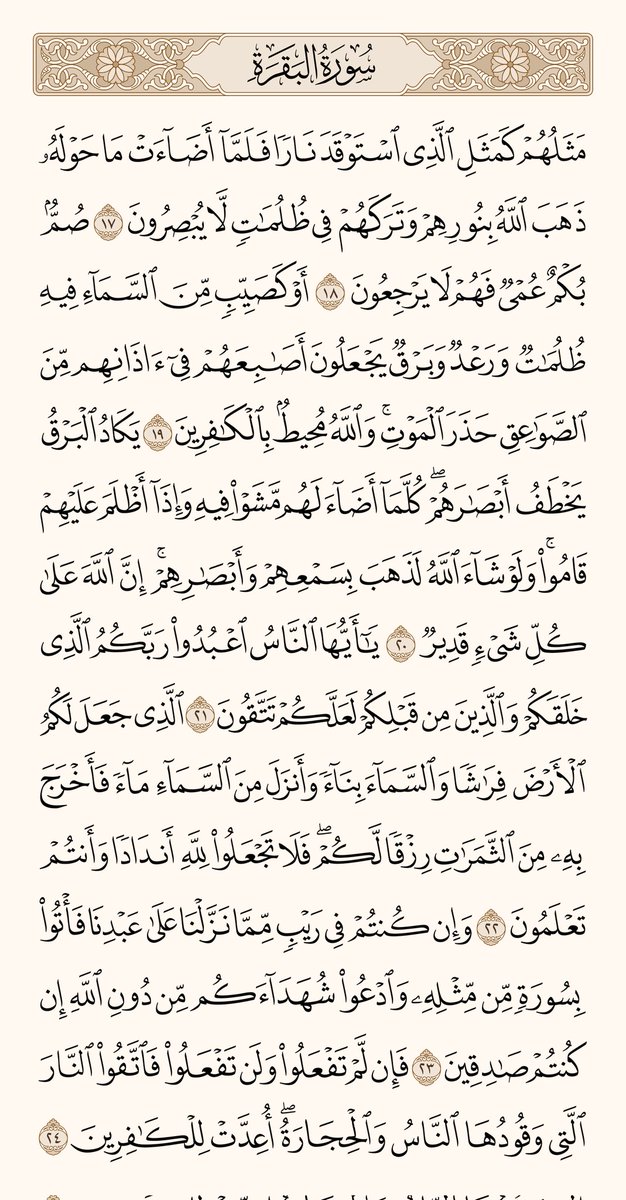 سُورَةُ البَقَرَةِ
مَثَلُهُمۡ كَمَثَلِ ٱلَّذِى ٱسۡتَوۡقَدَ نَارٗا فَلَمَّآ أَضَآءَتۡ مَا حَوۡلَهُۥ
ذَهَبَ ٱللَّهُ بِنُورِهِمۡ وَتَرَكَهُمۡ فِى ظُلُمَٰتٖ لَّا يُبۡصِرُونَ ١٧ صُمُّۢ
بُكۡمٌ عُمۡىٞ فَهُمۡ لَا يَرۡجِعُونَ ١٨ أَوۡ كَصَيِّبٖ مِّنَ ٱلسَّمَآءِ فِيهِ
ظُلُمَٰتٞ وَرَعۡدٞ وَبَرۡقٞ يَجۡعَلُونَ أَصَٰبِعَهُمۡ فِىٓ ءَاذَانِهِم مِّنَ
ٱلصَّوَٰعِقِ حَذَرَ ٱلۡمَوۡتِۚ وَٱللَّهُ مُحِيطُۢ بِٱلۡكَٰفِرِينَ ١٩ يَكَادُ ٱلۡبَرۡقُ
يَخۡطَفُ أَبۡصَٰرَهُمۡۖ كُلَّمَآ أَضَآءَ لَهُم مَّشَوۡاْ فِيهِ وَإِذَآ أَظۡلَمَ عَلَيۡهِمۡ
قَامُواْۚ وَلَوۡ شَآءَ ٱللَّهُ لَذَهَبَ بِسَمۡعِهِمۡ وَأَبۡصَٰرِهِمۡۚ إِنَّ ٱللَّهَ عَلَىٰ
كُلِّ شَىۡءٖ قَدِيرٞ ٢٠ يَٰٓأَيُّهَا ٱلنَّاسُ ٱعۡبُدُواْ رَبَّكُمُ ٱلَّذِى
خَلَقَكُمۡ وَٱلَّذِينَ مِن قَبۡلِكُمۡ لَعَلَّكُمۡ تَتَّقُونَ ٢١ ٱلَّذِى جَعَلَ لَكُمُ
ٱلۡأَرۡضَ فِرَٰشٗا وَٱلسَّمَآءَ بِنَآءٗ وَأَنزَلَ مِنَ ٱلسَّمَآءِ مَآءٗ فَأَخۡرَجَ
بِهِۦ مِنَ ٱلثَّمَرَٰتِ رِزۡقٗا لَّكُمۡۖ فَلَا تَجۡعَلُواْ لِلَّهِ أَندَادٗا وَأَنتُمۡ
تَعۡلَمُونَ ٢٢ وَإِن كُنتُمۡ فِى رَيۡبٖ مِّمَّا نَزَّلۡنَا عَلَىٰ عَبۡدِنَا فَأۡتُواْ
بِسُورَةٖ مِّن مِّثۡلِهِۦ وَٱدۡعُواْ شُهَدَآءَكُم مِّن دُونِ ٱللَّهِ إِن
كُنتُمۡ صَٰدِقِينَ ٢٣ فَإِن لَّمۡ تَفۡعَلُواْ وَلَن تَفۡعَلُواْ فَٱتَّقُواْ ٱلنَّارَ
ٱلَّتِى وَقُودُهَا ٱلنَّاسُ وَٱلۡحِجَارَةُۖ أُعِدَّتۡ لِلۡكَٰفِرِينَ ٢٤